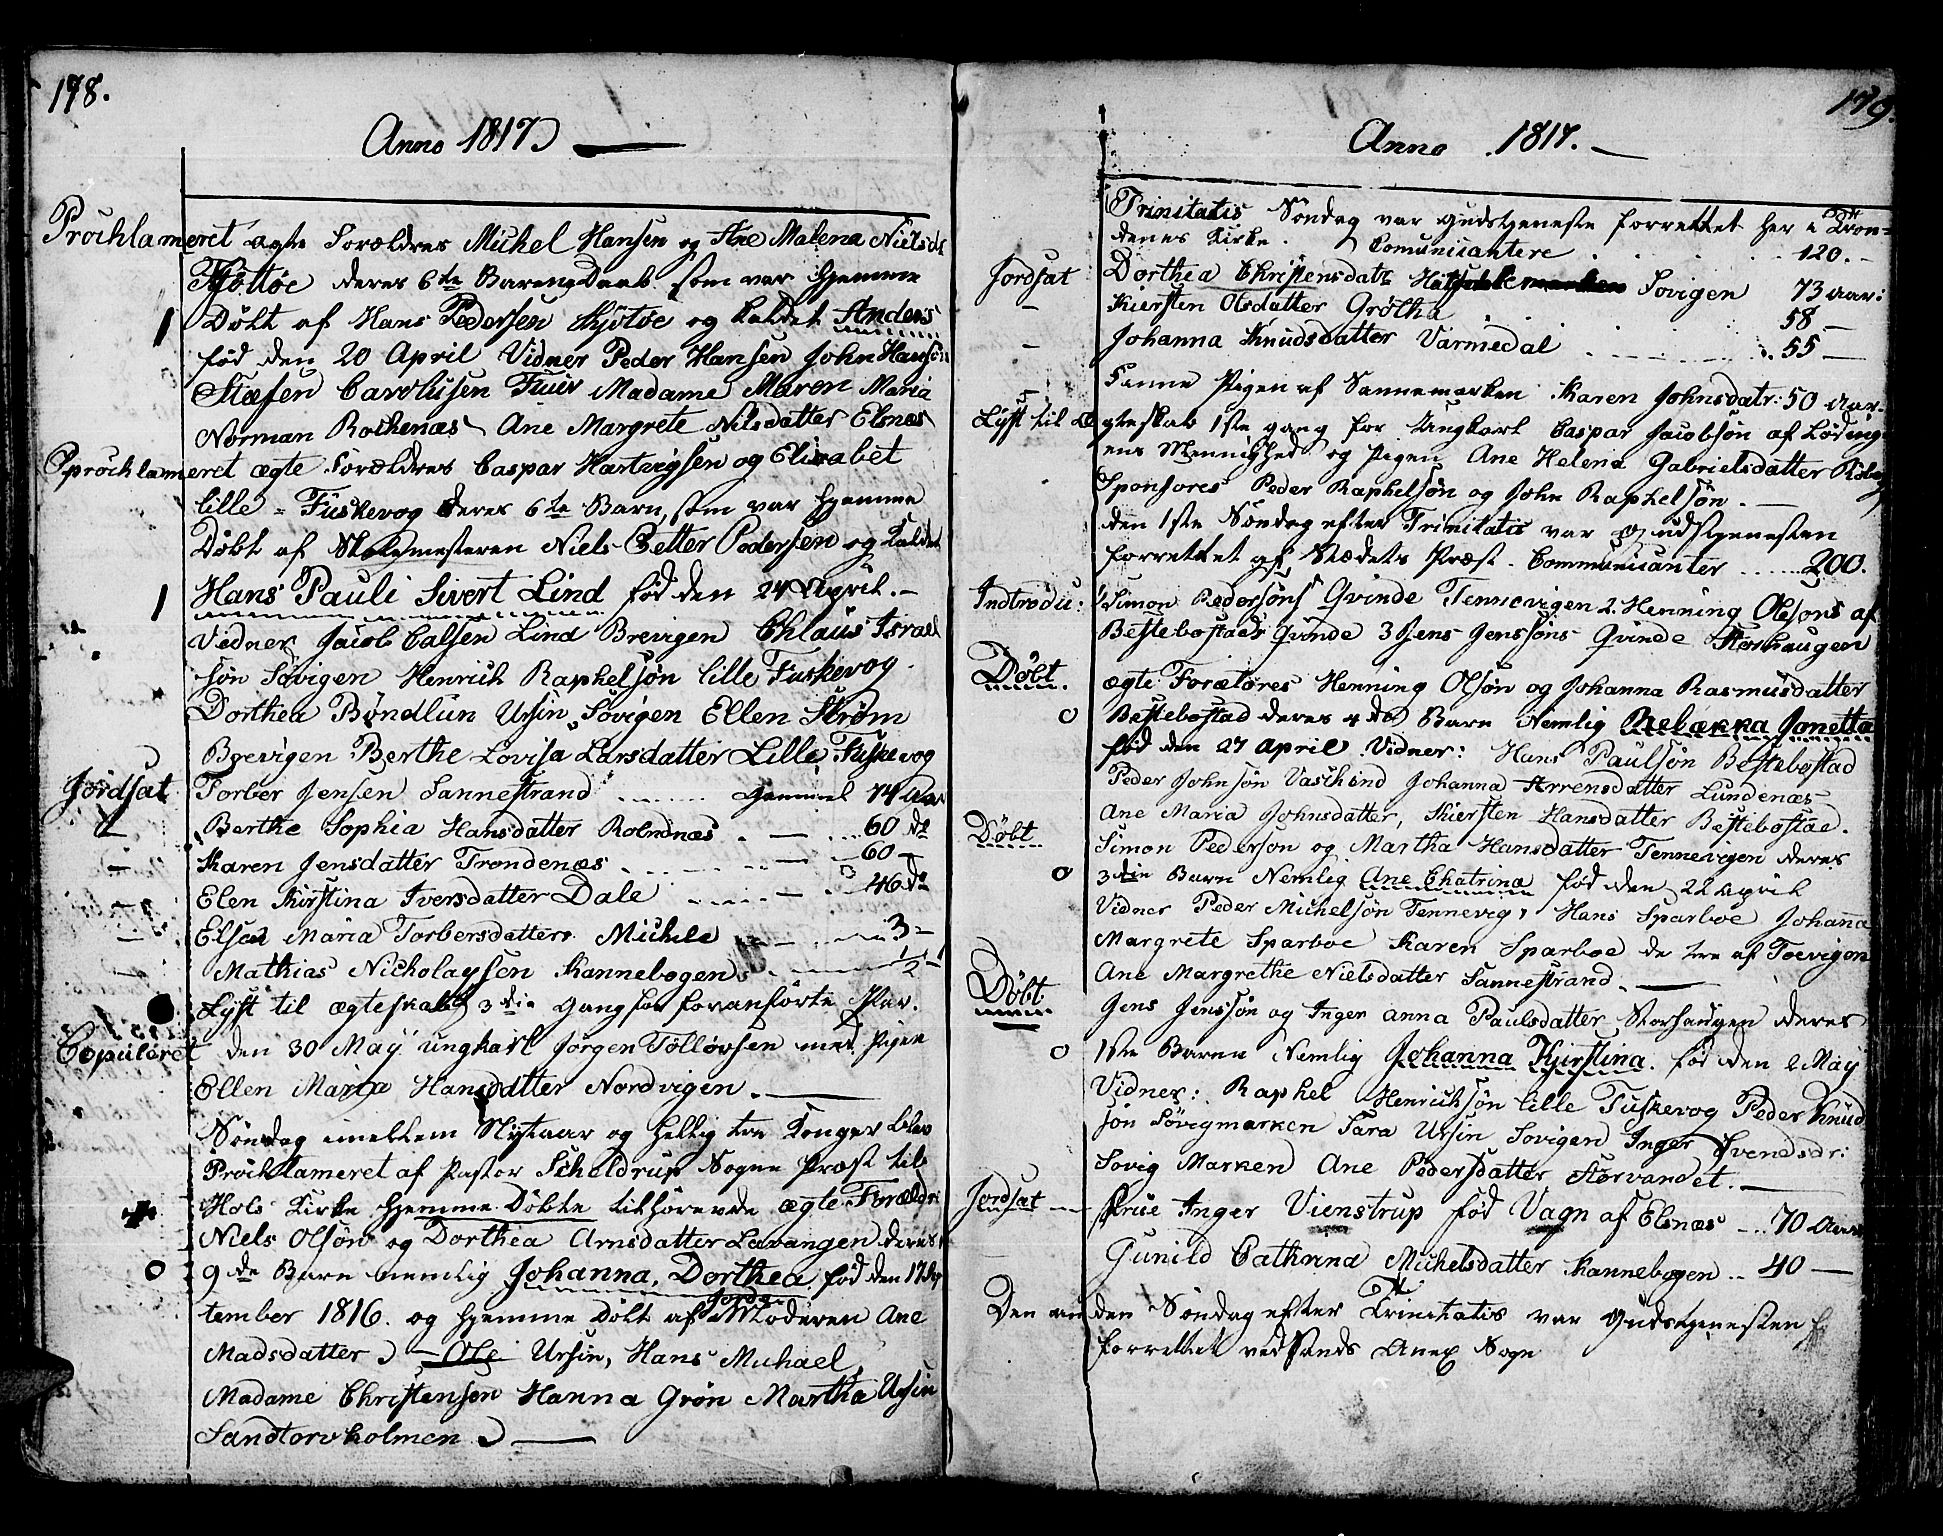 178.
Anno 1817
Prochlameret ægte Forældres Michel Hansen og Ane Malena Nielsd:
Kjøttøe deres 6te Barns Daab som var hjemme
1 Døbt af Hans Pedersen Kjøtøe og kaldet Anders
fød den 20 April Vidner Peder Hansen John Hansøn
Stæfen Carolusen Fluer Madame Maren Maria
Norman Rochenæs Ane Margrete Nilsdatter Elsnæs
Prochlameret ægte Forældres Caspar Hartvigsen og Elisabet
lille = Fuskevog deres 6te Barn, som var hjemme
Døbt af Skolemesteren Niels Petter Pedersen og kaldet
1 Hans Pauli Sivert Lind fød den 24 April. -
Vidner Jacob Calsen Lind Brevigen Chlaus Israel
søn Søvigen Henrich Raphelsøn lille Fuskevog
Dorthea Bøndlun Ursin Søvigen Ellen Strøm
Brevigen Berthe Lovisa Larsdatter Lille Fuskevog
Jordsat Torber Jensen Sannestrand gammel 74 Aar
- Berthe Sophia Hansdatter Rolndnæs 60 do
- Karen Jensdatter Trondenæs 60 -
- Elen Kirstina Iversdatter Dale 46 do
- Elsea Maria Torbersdatter Michele 3 -
Mathias Nicholaysen Kannebogen 1/2 -
Lyst til ægteskab 3die Gang for foranførte Par.
Copuleret den 30 May ungkarl Jørgen Tølløvsen med Pigen
Ellen Maria Hansdatter Nordvigen. -
Søndag imellem Nytaar og hellig tre Konger blev
Prochlameret af Pastor Scheldrup Sogne Præst til
Hols Kirke hjemme Døbte tilhørende ægte Foreldre
Niels Olsøn og Dorthea Arnsdatter Lavangen deres
o 9de Barn nemlig Johanna Dorthea fød den 17 Sep
tember 1816. og hjemme Døbt af Jorde Moderen Ane
Madsdatter - Ole Ursin, Hans Michael,
Madame Christensen Hanna Grøn Martha Ursin
Sandtorvholmen -
179.
Anno 1817. -
Trinitatis Søndag var gudstjeneste forrettet her i Tron=
denes Kirke. Comunicantere 120. -
Jordsat Dorthea Christensdatt: Sovigen 73 Aar:
- Kiersten Olsdatter Grøtha 58 -
- Johanna Knudsdatter Varmedal 55 -
Pigen af Sannemarken Karen Johnsdatr: 50 Aar.
Lyst til Ægteskab 1ste gang for Ungkarl Caspar Jacobsøn af Løding
ens Menighed og Pigen Ane Helena Gabrielsdatter
Sponsores Peder Raphelsøn og John Raphelsøn. -
den 1ste Søndag efter Trinitatis var Gudstjenesten
forrettet af Stædets Præst. Communicanter 200.
Indtrodu: 1/ Simon Pedersøns Qvinde Tennevigen 2. Henning Olsons af
Bestebostads Qvinde 3 Jens Jenssøns Qvinde Storhaugen
Døbt. ægte Forætøres Henning Olsøn og Johanna Rasmusdatter
o Bestebostad deres 4de Barn Nemlig Rebækka Jonetta
fød den 27 April Vidner: Hans Paulsøn Bestebostad
Peder Johnsøn Johanna Arrensdatter Lundenæs
Ane Maria Johnsdatter, Kiersten Hansdatter Bestebostad.
Døbt Simon Pederson og Martha Hansdatter Tennevigen deres
o 3die Barn Nemlig Ane Chatrina fød den 22 April
Vidner Peder Michelsøn Tennevig, Hans Sparboe Johana
Margrete Sparboe Karen Sparboe de tre af Toevigen
Ane Margrethe Nielsdatter Sannestrand. -
Døbt. Jens Jenssøn og Inger Anna Paulsdatter Storhaugen deres
o 1ste Barn Nemlig Johanna Kjirstina. fød den 2 May
Vidner: Raphel Henrichsøn lille Fuskevog Peder Knud
søn Søvigmarken Sara Ursin Sovigen Inger Svendsdr:
Sovig Marken Ane Pedersdatter Storvandet. -
Jordsat - Frue Inger Vienstrup fød Vagn af Elsnæs 70 Aar
Gunild Cathrina Michelsdatter Kannebogen 40 -
Den anden Søndag efter Trinitatis var Gudstjenesten
forrettet ved Sands Anex Sogn